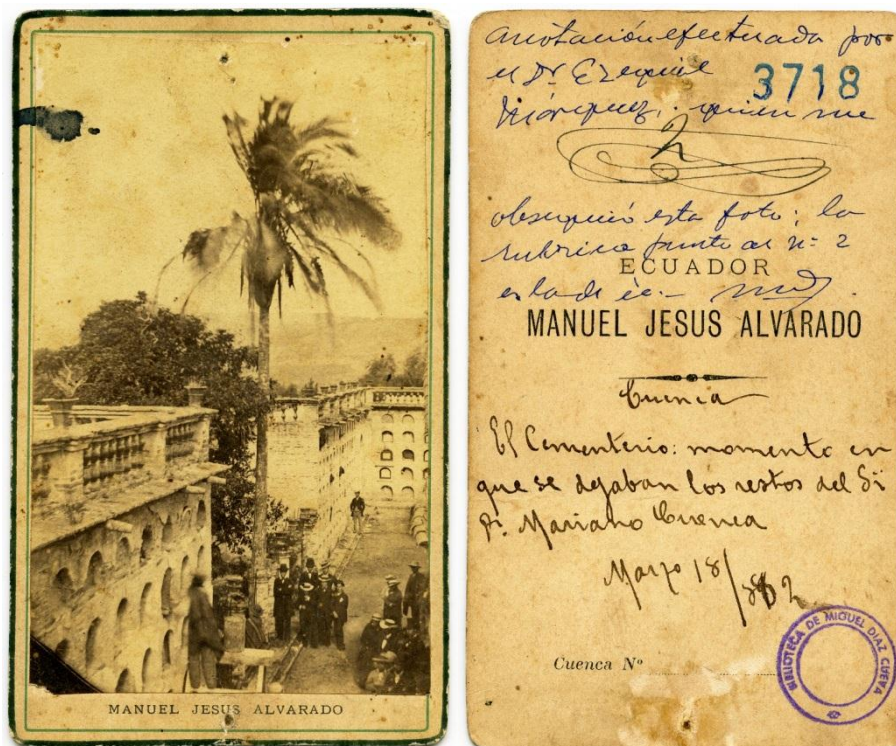 MANUEL JESUS ALVARADO
anotación efectuada por
el Dr Ezequiel
3718
Márquez, quien me
obsequió esta foto; la
rúbrica junto al nº 2
ECUADOR
es la de él.-
MANUEL JESUS ALVARADO
Cuenca
El Cementerio: momento en
que se dejaban los restos del Sr
Dr. Mariano Cuenca
Marzo 18/882
Cuenca Nº
BIBLIOTECA DE MIGUEL DIAZ CUEVA